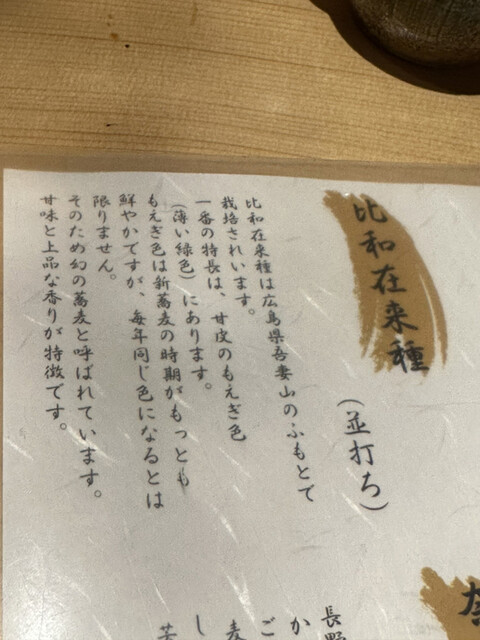 比和在来種
(並打ち)
比和在来種は広島県吾妻山のふもとで
栽培されいます。
一番の特長は、甘皮のもえぎ色
(薄い緑色)にあります。
もえぎ色は新蕎麦の時期がもっとも
鮮やかですが、毎年同じ色になるとは
限りません。
そのため幻の蕎麦と呼ばれています。
甘味と上品な香りが特徴です。
長野
か
ご
麦
し